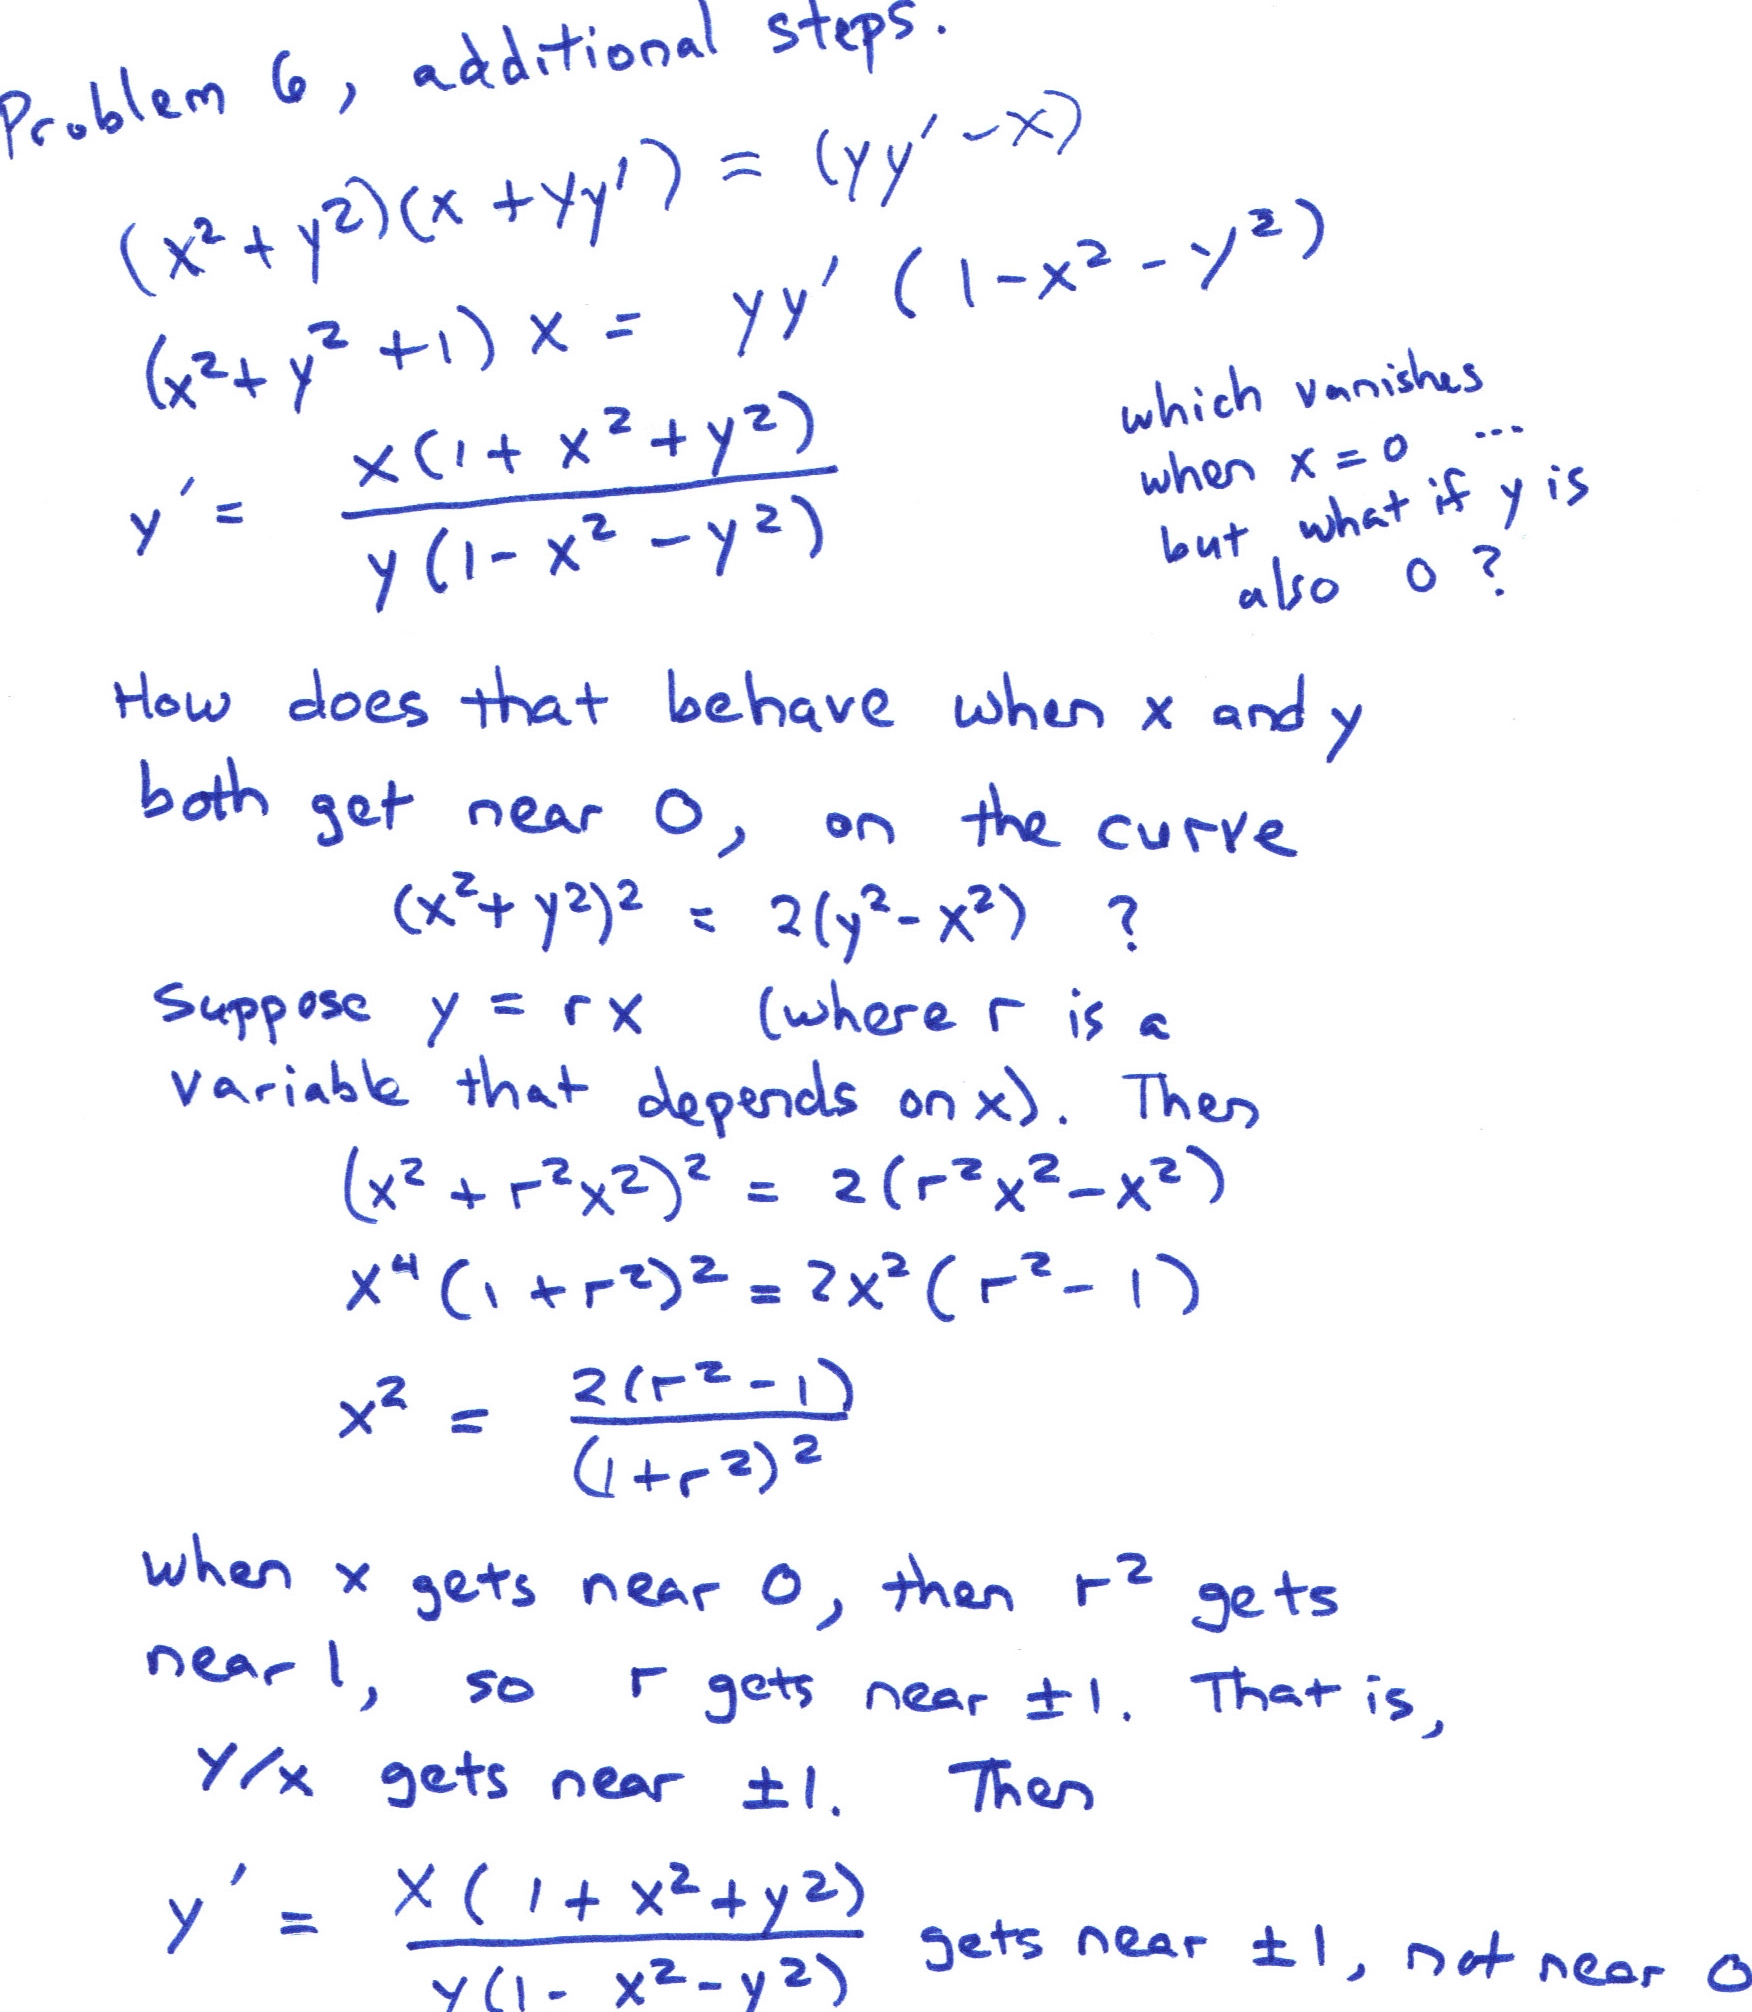 Problem 6, additional steps.
(x² + y²)(x + yy') = (yy' - x)
(x² + y² + 1) x = yy' (1 - x² - y²)
y' = x(1 + x² + y²) / y(1 - x² - y²)
which vanishes
when x = 0 ...
but what if y is
also 0 ?
How does that behave when x and y
both get near 0, on the curve
(x² + y²)² = 2(y² - x²) ?
Suppose y = rx (where r is a
variable that depends on x). Then
(x² + r²x²)² = 2(r²x² - x²)
x⁴(1 + r²)² = 2x²(r² - 1)
x² = 2(r² - 1) / (1 + r²)²
when x gets near 0, then r² gets
near 1, so r gets near ±1. That is,
y/x gets near ±1. Then
y' = x(1 + x² + y²) / y(1 - x² - y²) gets near ±1, not near 0